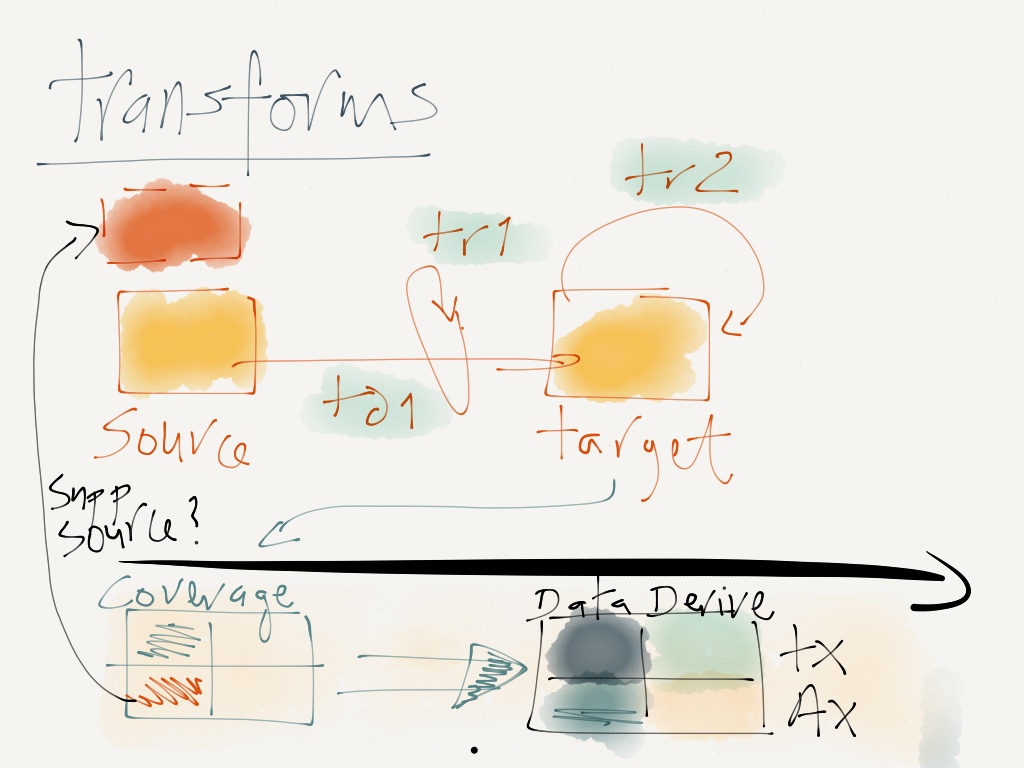 transforms
tr2
tr1
to1
source
target
Supp
source?
Coverage
Data Derive
tx
Ax